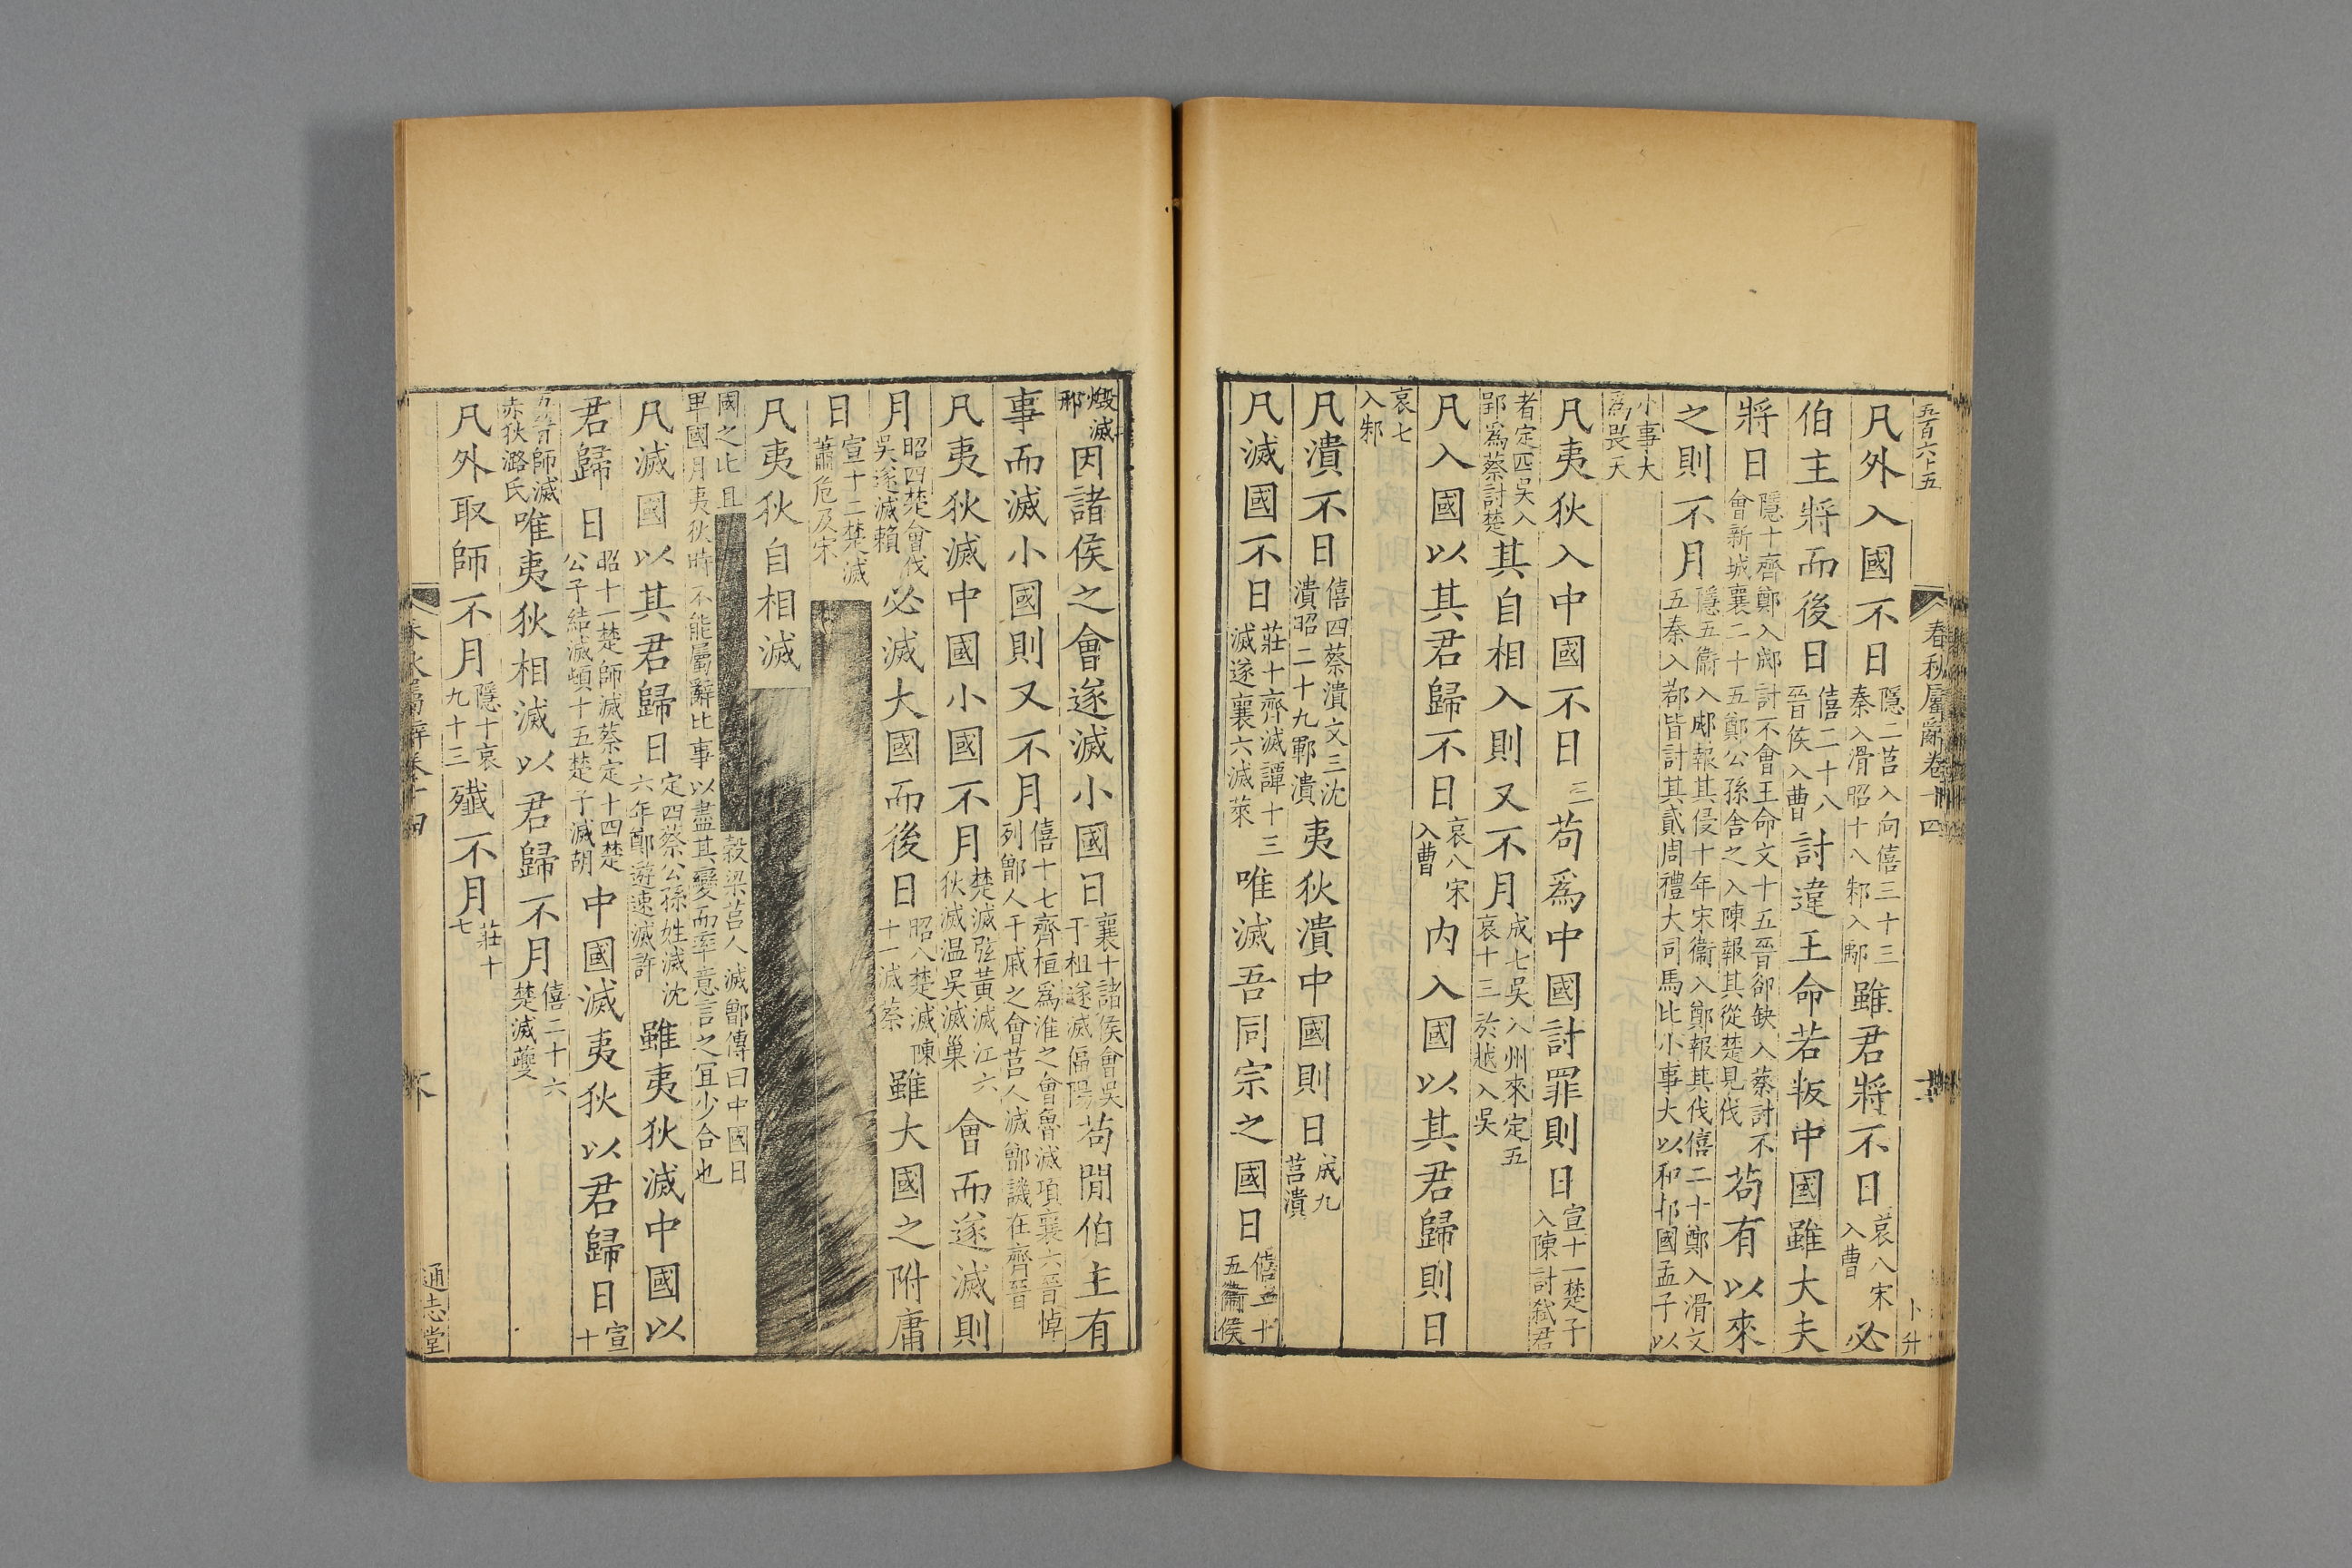 五百六十五
春秋屬辭卷十四
卜升
凡外入國不日隱二莒入向僖三十三秦入滑昭十八邾入鄅雖君將不日哀八宋入曹必
伯主將而後日僖二十八晉侯入曹討違王命若叛中國雖大夫
將日隱十齊鄭入郕討不會王命文十五晉郤缺入蔡討不會新城襄二十五鄭公孫舍之入陳報其從楚見伐苟有以來
之則不月隱五衞入郕報其侵十年宋衞入鄭報其伐僖二十鄭入滑文五秦入鄀皆討其貳周禮大司馬比小事大以和邦國孟子以
小事大爲畏天
凡夷狄入中國不日 三 苟爲中國討罪則日宣十一楚子入陳討弑君
者定四吳入郢爲蔡討楚其自相入則又不月成七吳入州來定五哀十三於越入吳
凡入國以其君歸不日哀八宋入曹內入國以其君歸則日
哀七入邾
凡潰不日僖四蔡潰文三沈潰昭二十九鄆潰夷狄潰中國則日成九莒潰
凡滅國不日莊十齊滅譚十三滅遂襄六滅萊唯滅吾同宗之國日僖二十五衞侯
燬滅邢因諸侯之會遂滅小國日襄十諸侯會吳于柤遂滅偪陽苟閒伯主有
事而滅小國則又不月僖十七齊桓爲淮之會魯滅項襄六晉悼列鄫人于戚之會莒人滅鄫譏在齊晉
凡夷狄滅中國小國不月楚滅弦黃滅江六狄滅温吳滅巢會而遂滅則
月昭四楚會伐吳遂滅賴必滅大國而後日昭八楚滅陳十一滅蔡雖大國之附庸
日宣十二楚滅蕭危及宋
凡夷狄自相滅
國之比且穀梁莒人滅鄫傳曰中國日卑國月夷狄時不能屬辭比事以盡其變而率意言之宜少合也
凡滅國以其君歸日定四蔡公孫姓滅沈六年鄭遊速滅許雖夷狄滅中國以
君歸日昭十一楚師滅蔡定十四楚公子結滅頓十五楚子滅胡中國滅夷狄以君歸日宣十
五晉師滅赤狄潞氏唯夷狄相滅以君歸不月僖二十六楚滅夔
凡外取師不月隱十哀九十三殲不月莊十七
春秋屬辭卷十四
通志堂